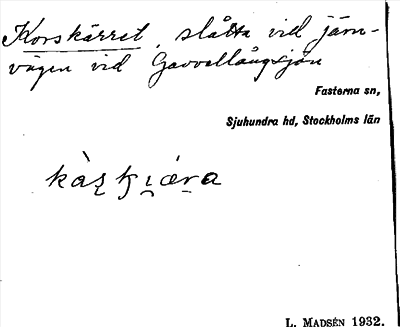 Korskärret, slåtta vid järn-
vägen vid Gavvellångsjön
Fasterna sn,
Sjuhundra hd, Stockholms län
L. MADSÉN 1932.